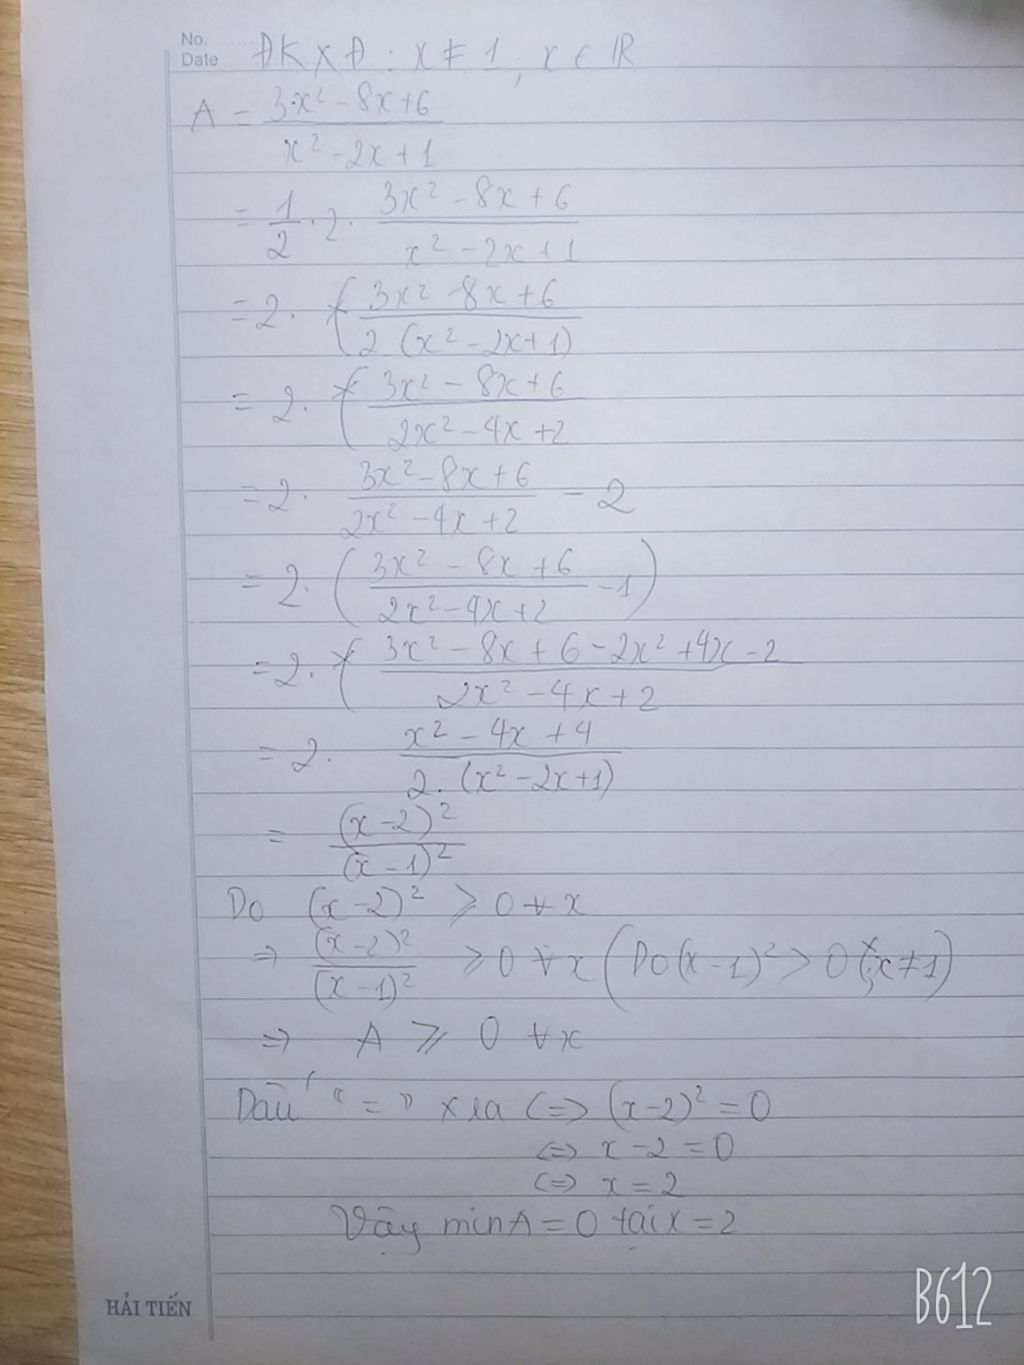 No.
Date ĐKXĐ: x ≠ 1; x ∈ ℝ
A = (3x² - 8x + 6)/(x² - 2x + 1)
= 1/2 · 2 · (3x² - 8x + 6)/(x² - 2x + 1)
= 2 · (3x² - 8x + 6)/(2 (x² - 2x + 1))
= 2 · (3x² - 8x + 6)/(2x² - 4x + 2)
= 2 · (3x² - 8x + 6)/(2x² - 4x + 2) - 2
= 2 · ((3x² - 8x + 6)/(2x² - 4x + 2) - 1)
= 2 · (3x² - 8x + 6 - 2x² + 4x - 2)/(2x² - 4x + 2)
= 2 · (x² - 4x + 4)/(2 · (x² - 2x + 1))
= (x - 2)²/(x - 1)²
Do (x - 2)² ⩾ 0 ∀ x
⇒ (x - 2)²/(x - 1)² ⩾ 0 ∀ x (Do (x - 1)² > 0 ; x ≠ 1)
⇒ A ⩾ 0 ∀ x
Dấu "=" xảy ra ⇔ (x - 2)² = 0
⇔ x - 2 = 0
⇔ x = 2
Vậy min A = 0 tại x = 2
HẢI TIẾN
B612